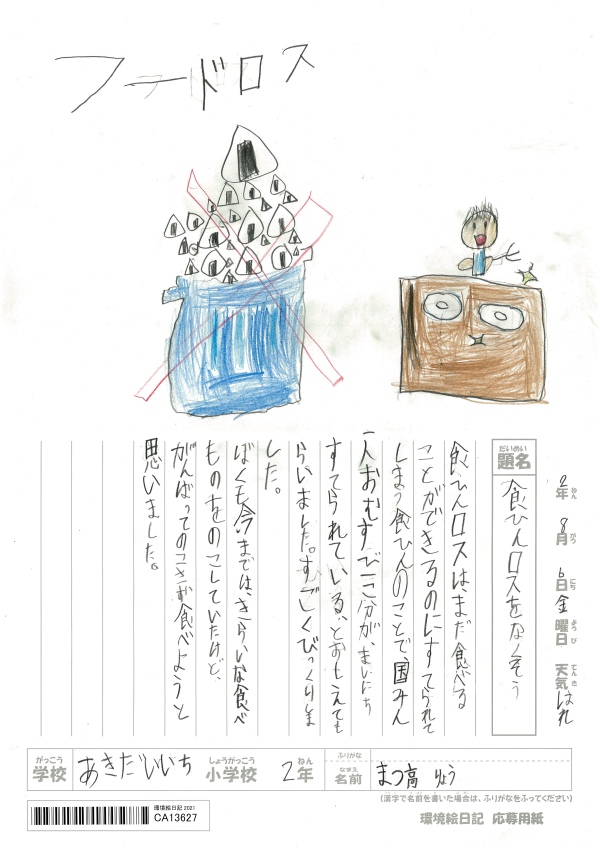 フードロス
2年 8月 6日 金曜日 天気 はれ
ねん がつ にち ようび てんき
だいめい
題名 食ひんロスをなくそう
食ひんロスは、まだ食べる
ことができるのにすてられて
しまう食ひんのことで、国みん
一人おむすび一こ分が、まいにち
すてられている、とおしえても
らいました。すごくびっくりしま
した。
ぼくも今までは、きらいな食べ
ものをのこしていたけど、
がんばってのこさず食べようと
思いました。
がっこう しょうがっこう ねん ふりがな
学校 あきだいいち 小学校 2年 名前 まつ高 りょう
なまえ
(漢字で名前を書いた場合は、ふりがなをふってください)
環境絵日記 2021
CA13627
環境絵日記 応募用紙